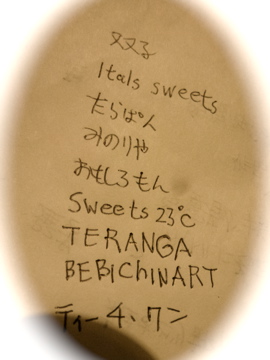 双双る
Itals sweets
たらぱん
みのりや
おもしろもん
Sweets 23℃
TERANGA
BEBiCHiNART
ティー4.ワン